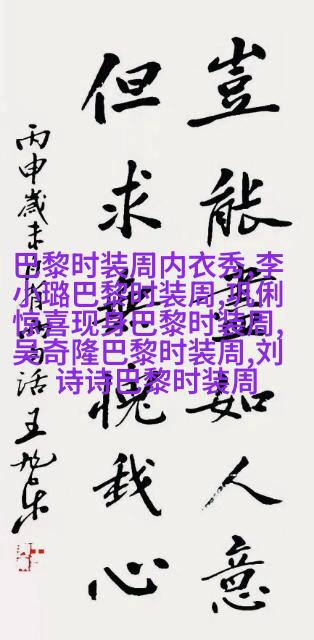 豈能盡如人意
但求無愧我心
丙申歲末
巴黎时装周内衣秀,李
小璐巴黎时装周,巩俐
惊喜现身巴黎时装周,
吴奇隆巴黎时装周,刘
诗诗巴黎时装周